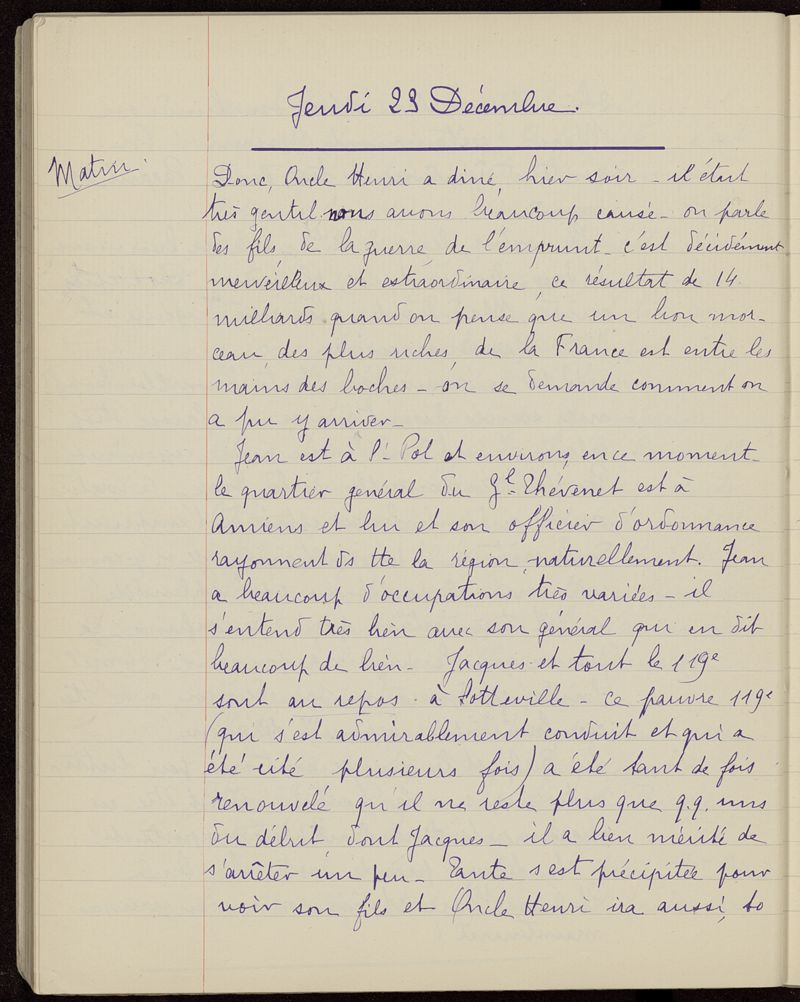 Jeudi 23 Décembre.
Matin.
Donc, Oncle Henri a diné, hier soir - il était
très gentil, nous avons beaucoup causé - on parle
des fils, de la guerre, de l'emprunt - c'est décidément
merveilleux et extraordinaire, ce résultat de 14
milliards quand on pense que un bon mor-
ceau, des plus riches, de la France est entre les
mains des boches - on se demande comment on
a pu y arriver -
Jean est à St Pol et environs, en ce moment -
le quartier général du Gl Thévenet est à
Amiens et lui et son officier d'ordonnance
rayonnent ds tte la région, naturellement. Jean
a beaucoup d'occupations très variées - il
s'entend très bien avec son général qui en dit
beaucoup de bien - Jacques et tout le 119e
sont au repos à Sotteville - ce pauvre 119e
(qui s'est admirablement conduit et qui a
été cité plusieurs fois) a été tant de fois
renouvelé qu'il ne reste plus que q.q. uns
du début, dont Jacques - il a bien mérité de
s'arrêter un peu - Tante s'est précipitée pour
voir son fils et Oncle Henri ira aussi, to